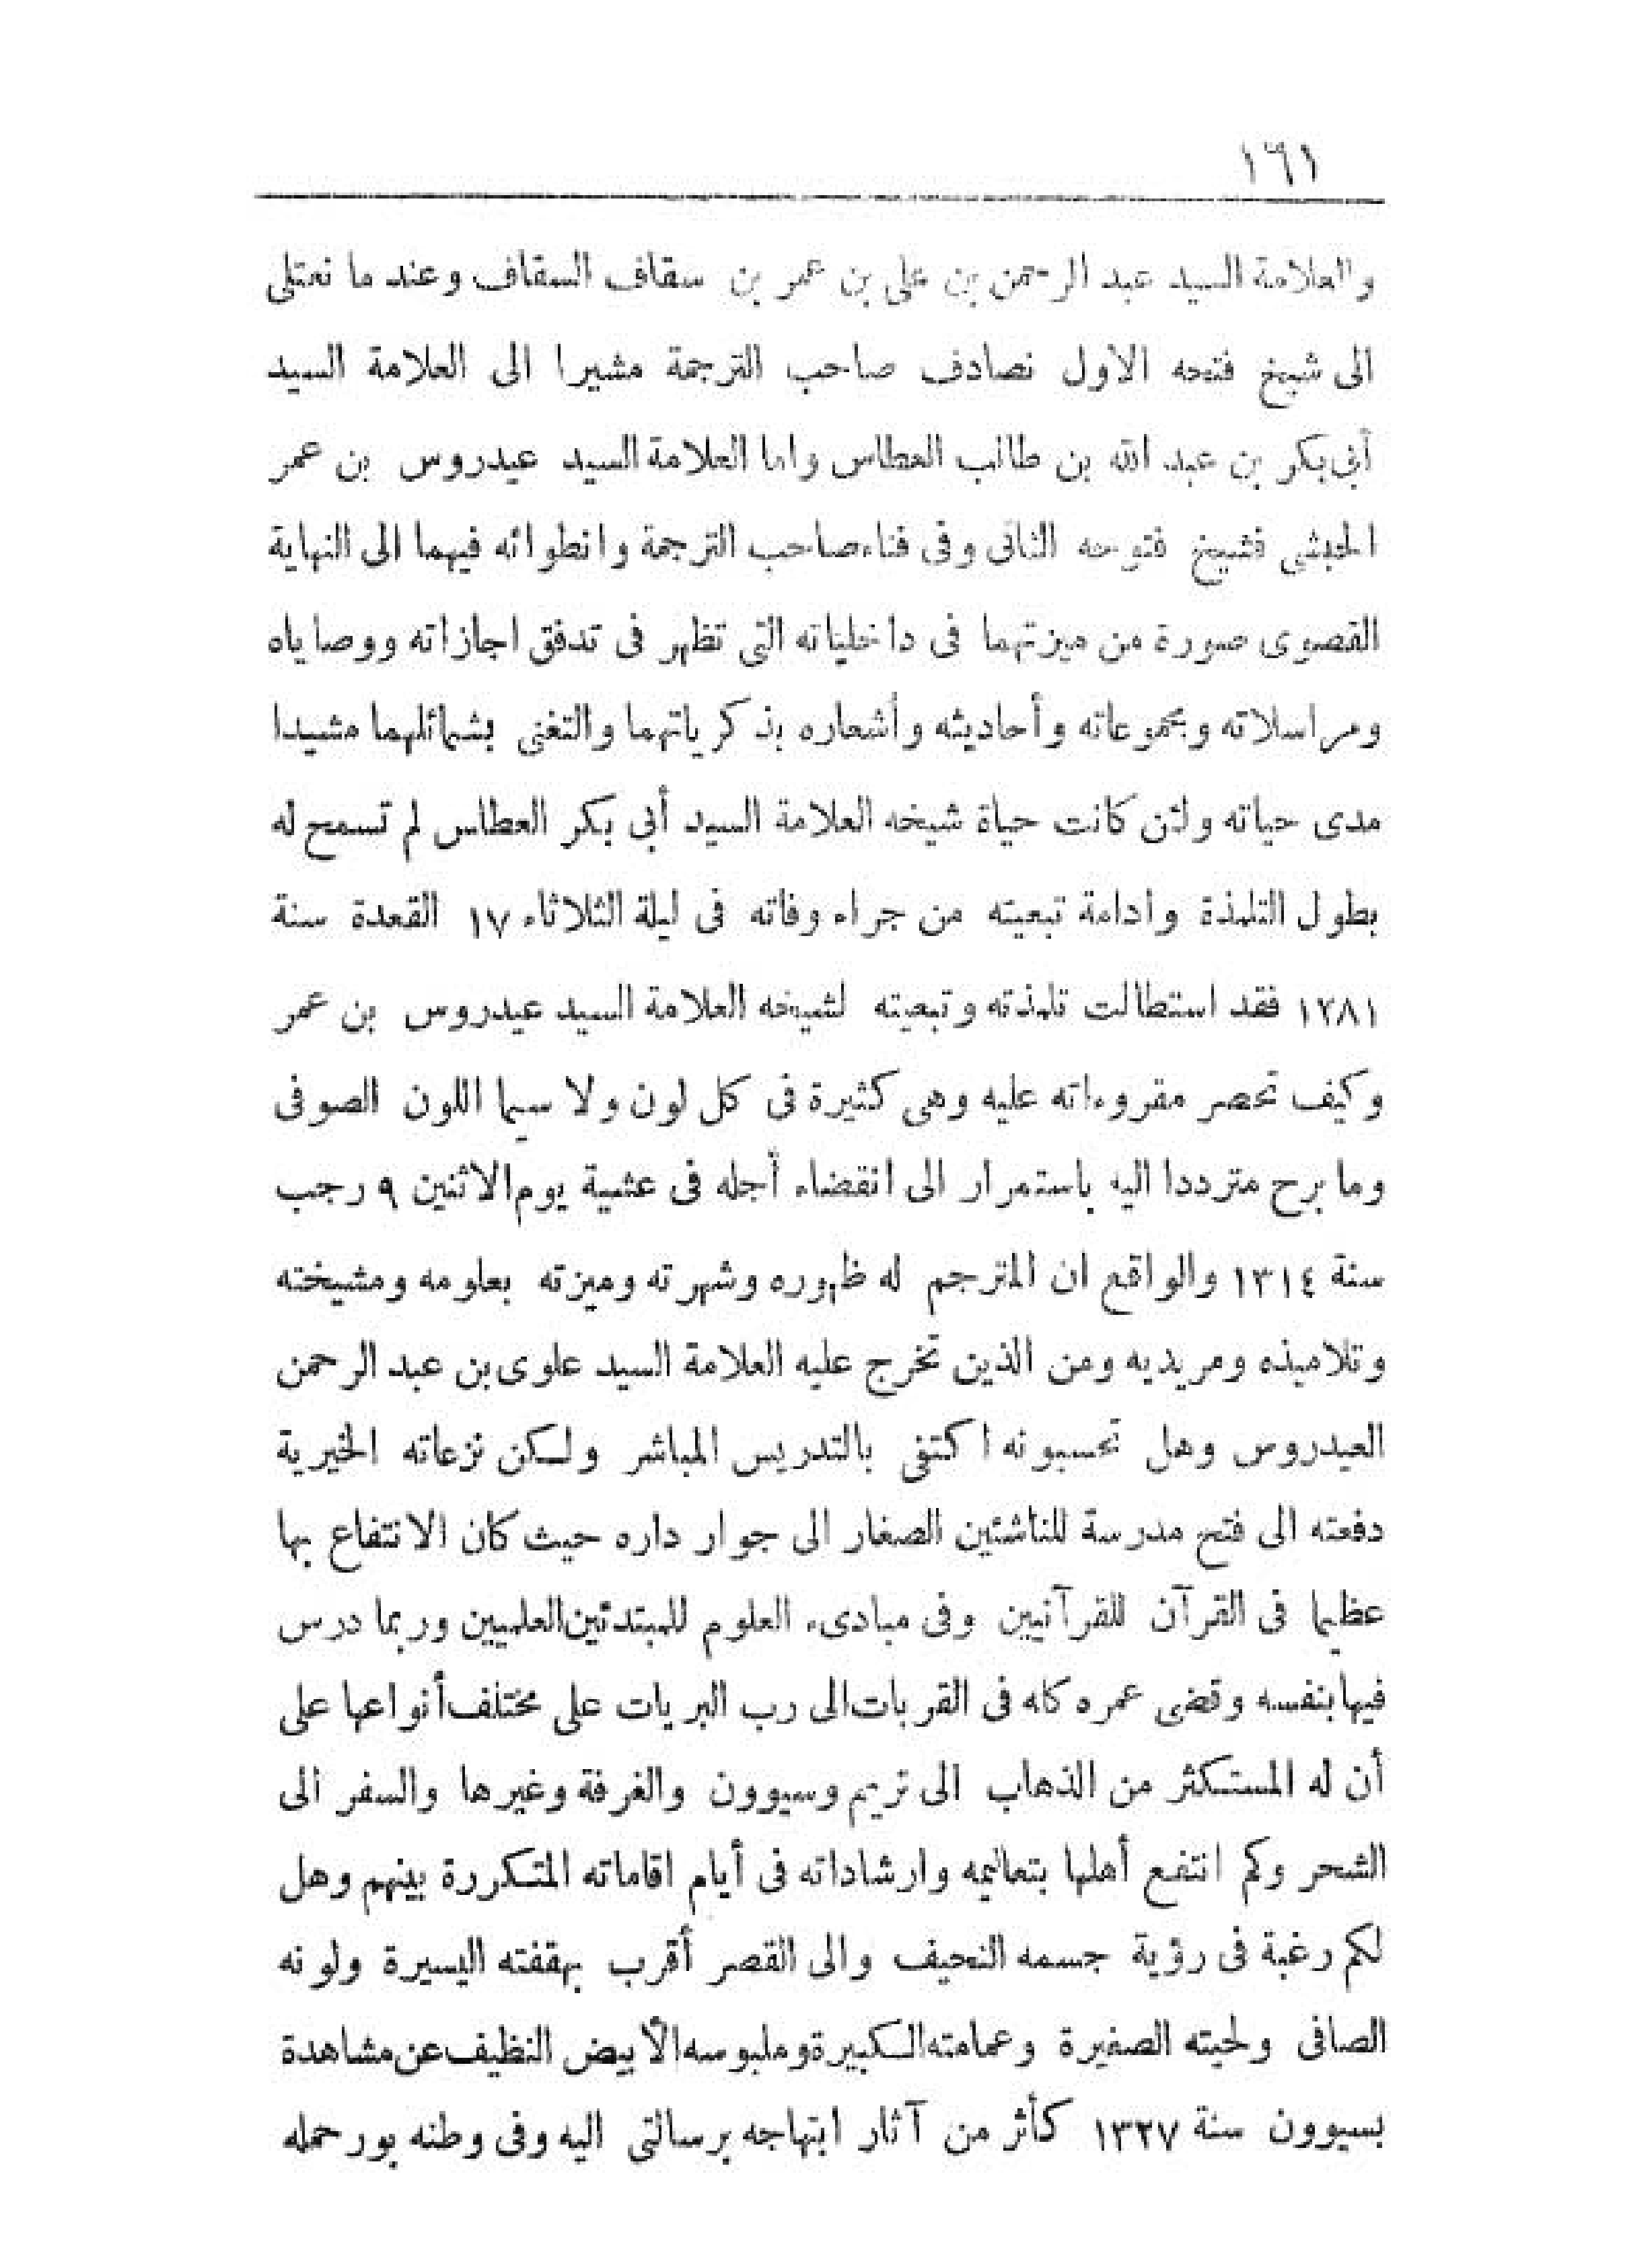 ١٦١
والعلامة السيد عبد الرحمن بن على بن عمر بن سقاف السقاف وعند ما نعتلى
الى شيخ فتحه الاول نصادف صاحب الترجمة مشيرا الى العلامة السيد
أبى بكر بن عبد الله بن طالب العطاس واما العلامة السيد عيدروس بن عمر
الحبشى فشيخ فتوحه الثانى وفى فناء صاحب الترجمة وانطوائه فيهما الى النهاية
القصوى صورة من ميزتهما فى داخلياته التى تظهر فى تدفق اجازاته ووصاياه
ومراسلاته ومجموعاته وأحاديثه وأشعاره بذكرياتهما والتغنى بشمائلهما مشيدا
مدى حياته ولئن كانت حياة شيخه العلامة السيد أبى بكر العطاس لم تسمح له
بطول التلمذة وادامة تبعيته من جراء وفاته فى ليلة الثلاثاء ١٧ القعدة سنة
١٢٨١ فقد استطالت تلمذته وتبعيته لشيخه العلامة السيد عيدروس بن عمر
وكيف تحصر مقروءاته عليه وهى كثيرة فى كل لون ولا سيما اللون الصوفى
وما برح مترددا اليه باستمرار الى انقضاء أجله فى عشية يوم الاثنين ٩ رجب
سنة ١٣١٤ والواقع ان المترجم له ظهوره وشهرته وميزته بعلومه ومشيخته
وتلاميذه ومريديه ومن الذين تخرج عليه العلامة السيد علوى بن عبد الرحمن
العيدروس وهل تحسبونه اكتفى بالتدريس المباشر ولكن نزعاته الخيرية
دفعته الى فتح مدرسة للناشئين الصغار الى جوار داره حيث كان الانتفاع بها
عظيما فى القرآن للقرآنيين وفى مبادىء العلوم للمبتدئين العلميين وربما درس
فيها بنفسه وقضى عمره كله فى القربات الى رب البريات على مختلف أنواعها على
أن له المستكثر من الذهاب الى تريم وسيوون والغرفة وغيرها والسفر الى
الشحر وكم انتفع أهلها بتعاليمه وارشاداته فى أيام اقاماته المتكررة بينهم وهل
لكم رغبة فى رؤية جسمه النحيف والى القصر أقرب بهقفته اليسيرة ولونه
الصافى ولحيته الصغيرة وعمامته الكبيرة وملبوسه الأبيض النظيف عن مشاهدة
بسيوون سنة ١٣٢٧ كأثر من آثار ابتهاجه برسالتى اليه وفى وطنه بور حمله